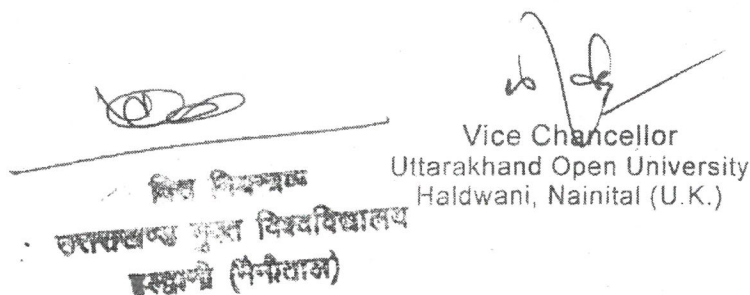 वित्त नियन्त्रक
उत्तराखण्ड मुक्त विश्वविद्यालय
हल्द्वानी (नैनीताल)
Vice Chancellor
Uttarakhand Open University
Haldwani, Nainital (U.K.)